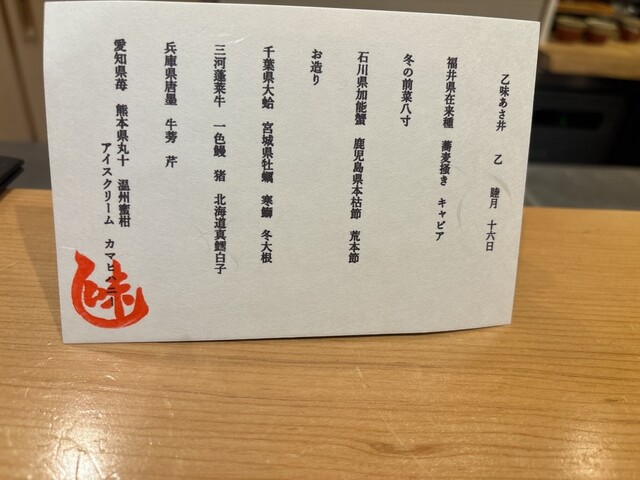 乙味あさ井 乙 睦月 十六日
福井県在来種 蕎麦掻き キャビア
冬の前菜八寸
石川県加能蟹 鹿児島県本枯節 荒本節
お造り
千葉県大蛤 宮城県牡蠣 寒鰤 冬大根
三河蓬莱牛 一色鰻 猪 北海道真鱈白子
兵庫県唐墨 牛蒡 芹
愛知県苺 熊本県丸十 温州蜜柑
アイスクリーム カマヒハニー
味